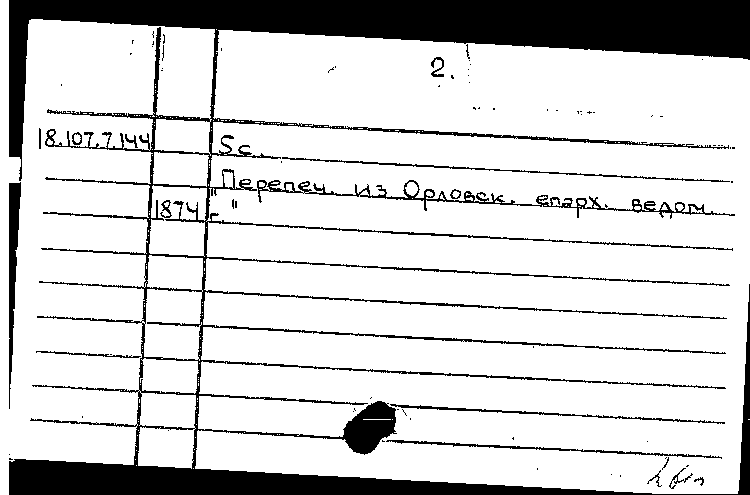 2.
18.107.7.144 5с.
"Перепеч. из Орловск. епарх. ведом.
1874 г."